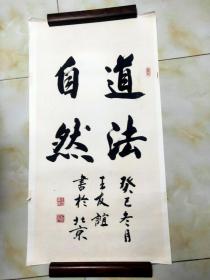 道法
自然
癸巳冬月
王友谊
书於北京